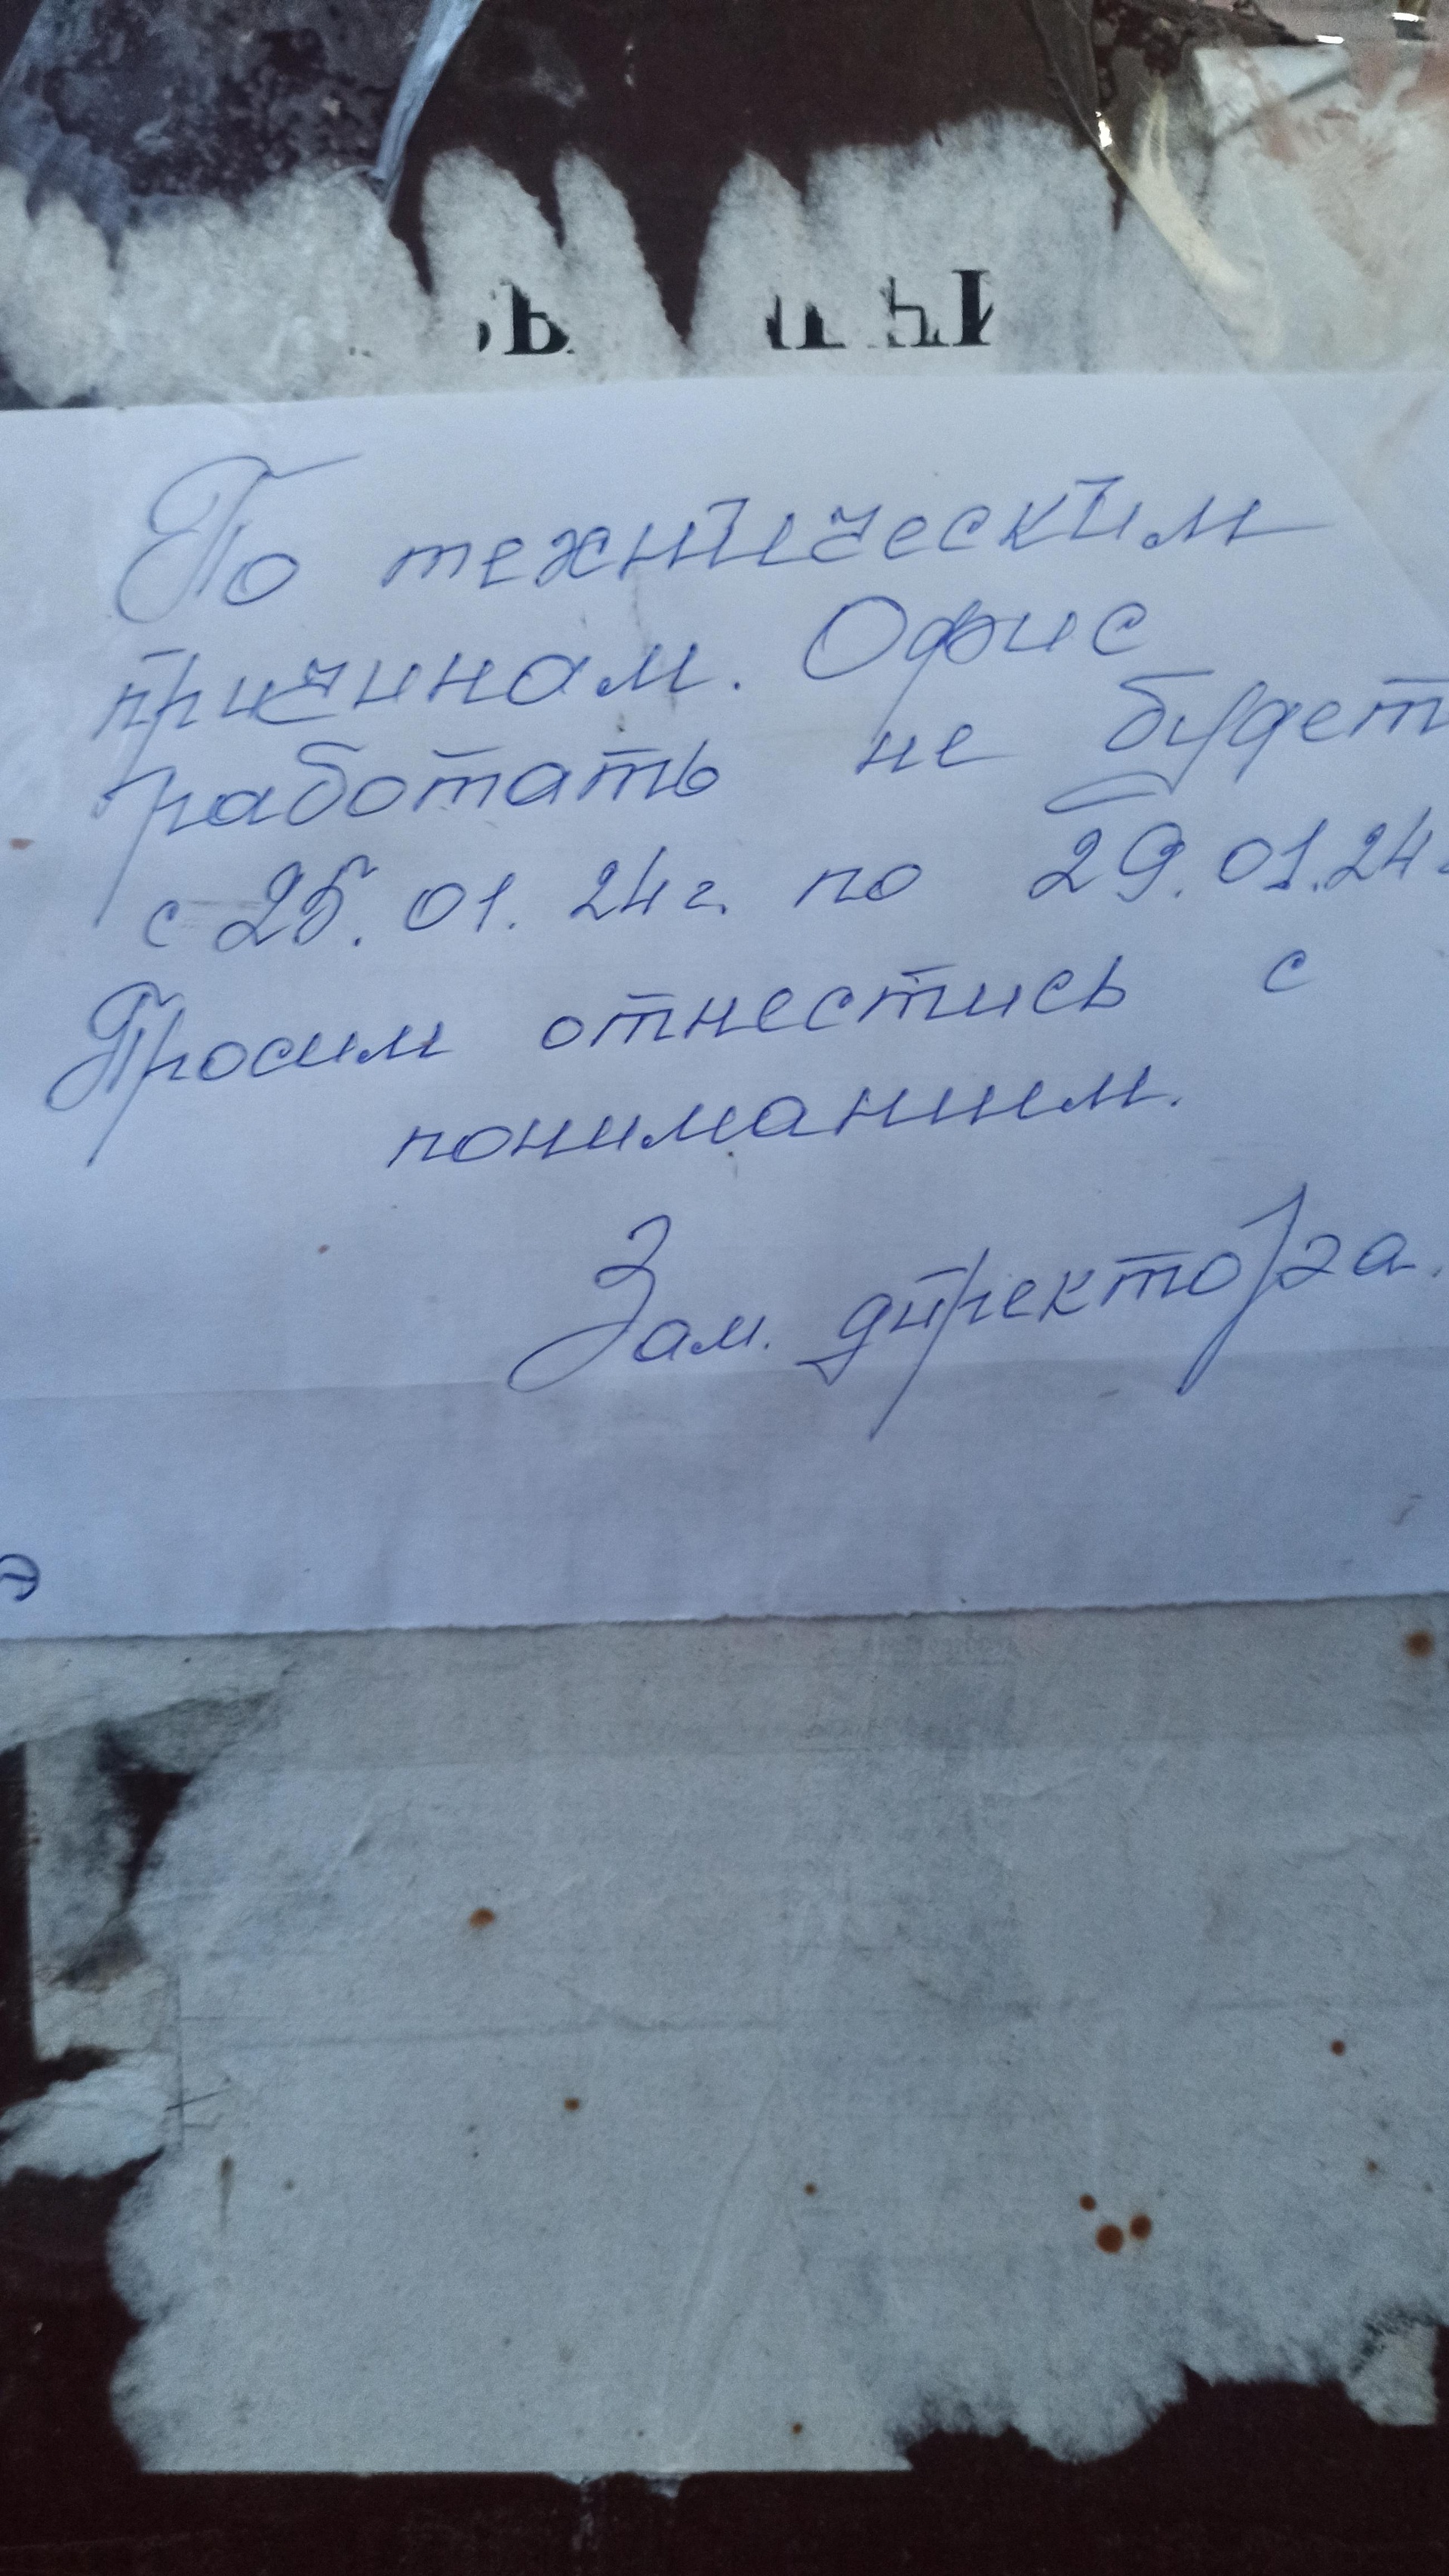 По техническим
причинам. Офис
работать не будет
с 25.01.24г. по 29.01.24
Просим отнестись с
пониманием.
Зам. директора.